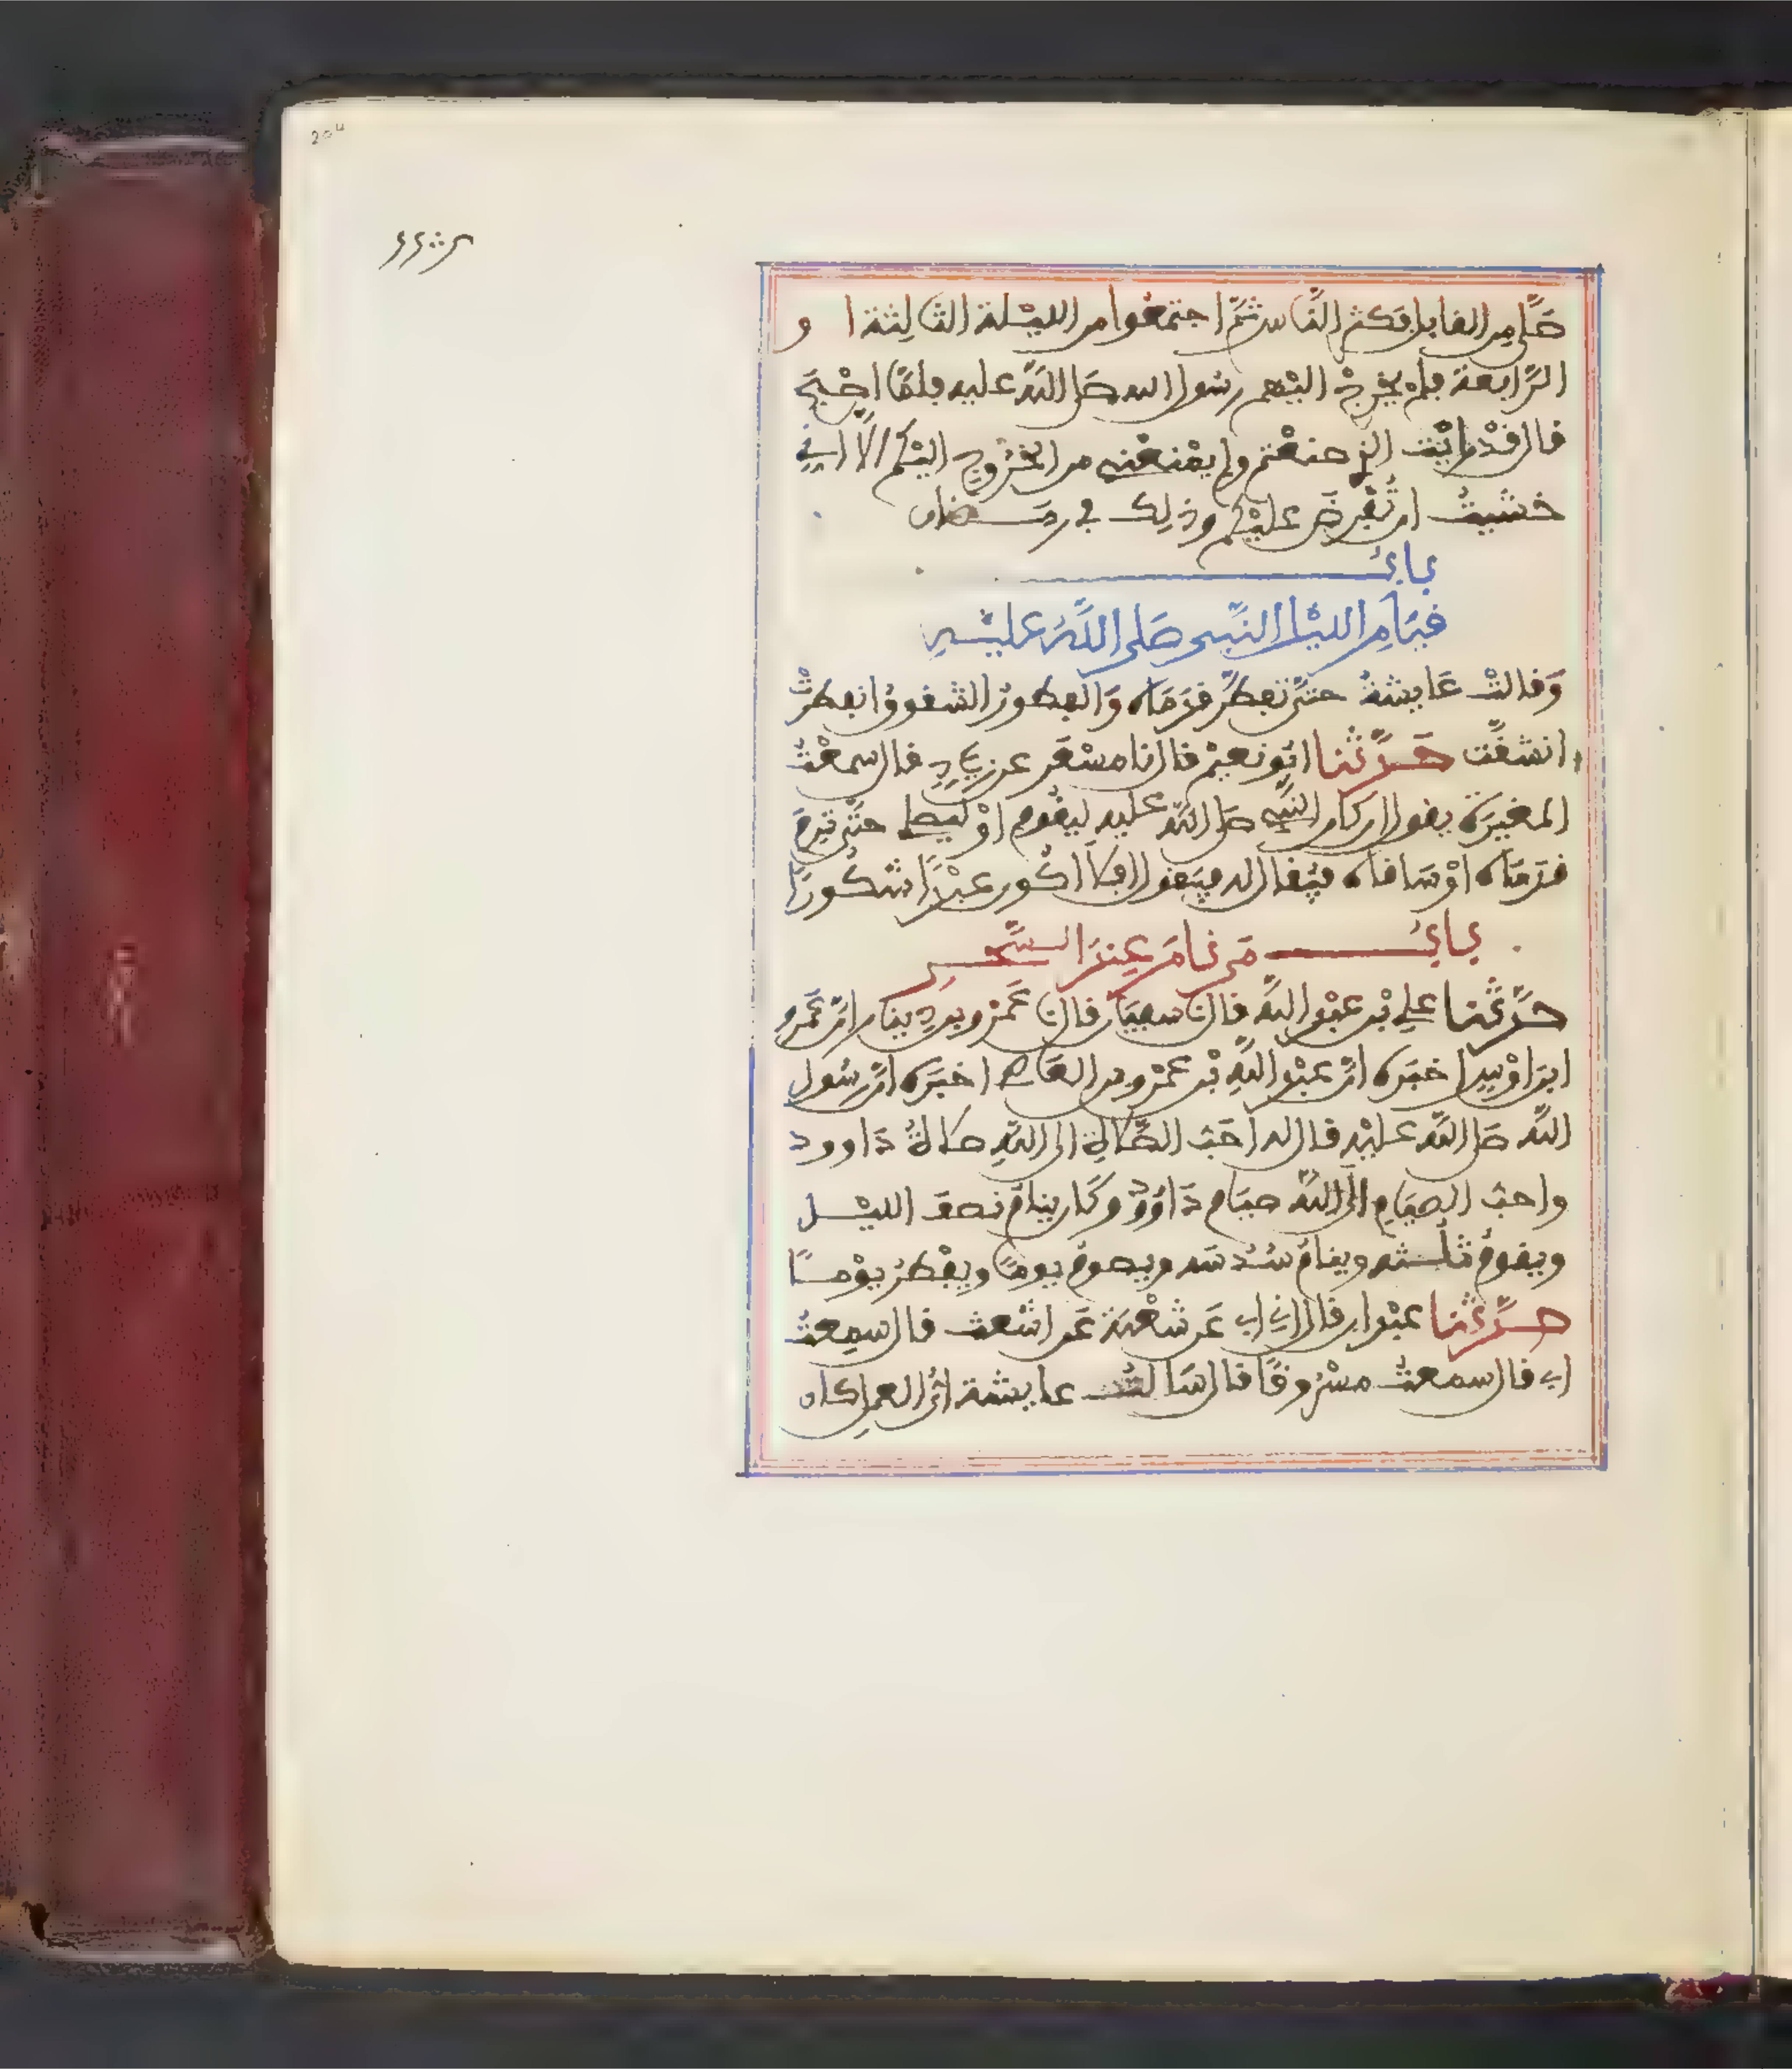 صَلَّى مِن القابل فكثر النَّاس ثمَّ اجتمعُوا من الليْلة الثالِثة او
الرَّابعة فلمْ يخرجْ اليْهم رسُول الله صَلى اللهُ عليه فلمَّا اصْبَح
قال قدْ رايْت الذي صنعْتم ولم يمْنعْني من الخُرُوج اليْكم الَّا اني
خشيتُ ان تُفْرضَ عليْكم وذلِك في رمضان
بابُ
قيَامِ الليْل النَّبي صَلى اللَّهُ عليْهِ
وَقالتْ عَايشةُ حتَّى تفطَّر قدَمَاه وَالفطورُ الشقوقُ انفطرتْ
انشقَّت حَدَّثنا ابُو نعيْم قال نا مسْعَر عن زيَاد قال سمعْتُ
المغيرَة يقول ان كان النَّبي صَلى اللهُ عليه ليقُوم اوْ ليصلي حتَّى ترِمَ
قدَمَاه اوْ سَاقاه فيُقال له فيَقول افلَا اكُون عبْدًا شكُورًا
بابُ مَن نامَ عِندَ السَّحر
حدَّثنا علي بْن عبْد اللَّه قال نا سفيَان قال نا عَمْرو بن دِينار انَّ عَمْرو
ابنَ اوْس اخبَره انَّ عبْد اللَّهِ بْن عمْرو بن العَاص اخبَره انَّ رسُول
اللَّه صَلى اللَّه عليْه قال له احَبُّ الصَّلاةِ الى اللَّهِ صلاةُ دَاوود
واحبُّ الصيَامِ الَى اللَّه صيَام دَاوُودَ وكَان ينامُ نصفَ الليْل
ويقومُ ثلُثه وينامُ سُدُسَه ويصومُ يومًا ويفْطرُ يوْمًا
حدَّثنا عبْدان قال اني ابي عَن شعْبَة عَن اشْعث قال سمِعتُ
ابي قال سمعتُ مسْرُوقًا قال سَالتُ عايشة ايُّ العمل كان